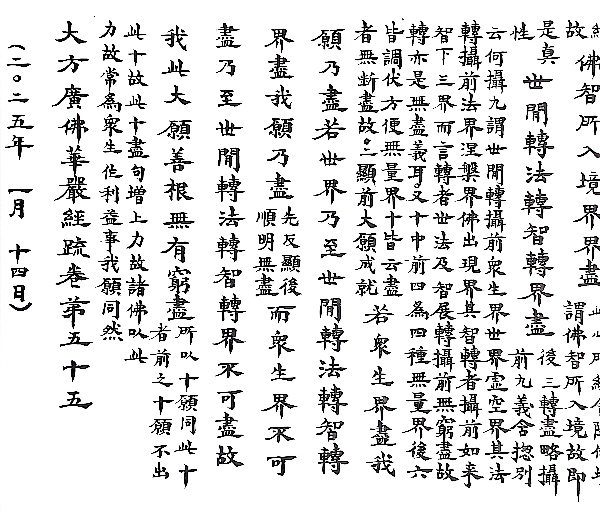 故
佛智所入境界界盡
謂佛智所入境故即
是真
性
世間轉法轉智轉界盡
後三轉盡略攝
前九義含揔別
云何攝九謂世間轉攝前眾生界世界虛空界其法
轉攝前法界涅槃界佛出現界其智轉者攝前如來
智下三界而言轉者世法及智展轉攝前無窮盡故
轉亦是無盡義耳又十中前四為四種無量界後六
皆調伏方便無量界十皆云盡
者無斷盡故。二顯前大願成就
若眾生界盡我
願乃盡若世界乃至世間轉法轉智轉
界盡我願乃盡
先反顯後
順明無盡
而眾生界不可
盡乃至世間轉法轉智轉界不可盡故
我此大願善根無有窮盡
所以十願同此十
者前之十願不出
此十故此十盡句增上力故諸佛以此
力故常為眾生作利益事我願同然
大方廣佛華嚴經疏卷第五十五
(二〇二五年 一月 十四日)